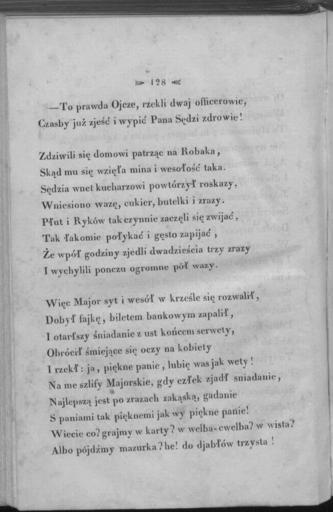 128
—To prawda Ojcze, rzekli dwaj officerowie,
Czasby już zjeść i wypić Pana Sędzi zdrowie!
Zdziwili się domowi patrząc na Robaka,
Skąd mu się wzięła mina i wesołość taka.
Sędzia wnet kucharzowi powtórzył roskazy,
Wniesiono wazę, cukier, butelki i zrazy.
Płut i Ryków tak czynnie zaczęli się zwijać,
Tak łakomie połykać i gęsto zapijać,
Że wpół godziny zjedli dwadzieścia trzy zrazy
I wychylili ponczu ogromne pół wazy.
Więc Major syt i wesół w krześle się rozwalił,
Dobył fajkę, biletem bankowym zapalił,
I otarłszy śniadanie z ust końcem serwety,
Obrócił śmiejące się oczy na kobiety
I rzekł: ja, piękne panie, lubię was jak wety!
Na me szlify Majorskie, gdy człek zjadł sniadanie,
Najlepszą jest po zrazach zakąską, gadanie
S paniami tak pięknemi jak wy piękne panie!
Wiecie co? grajmy w karty? w welba-cwelba? w wista?
Albo pójdźmy mazurka? he! do djabłów trzysta!